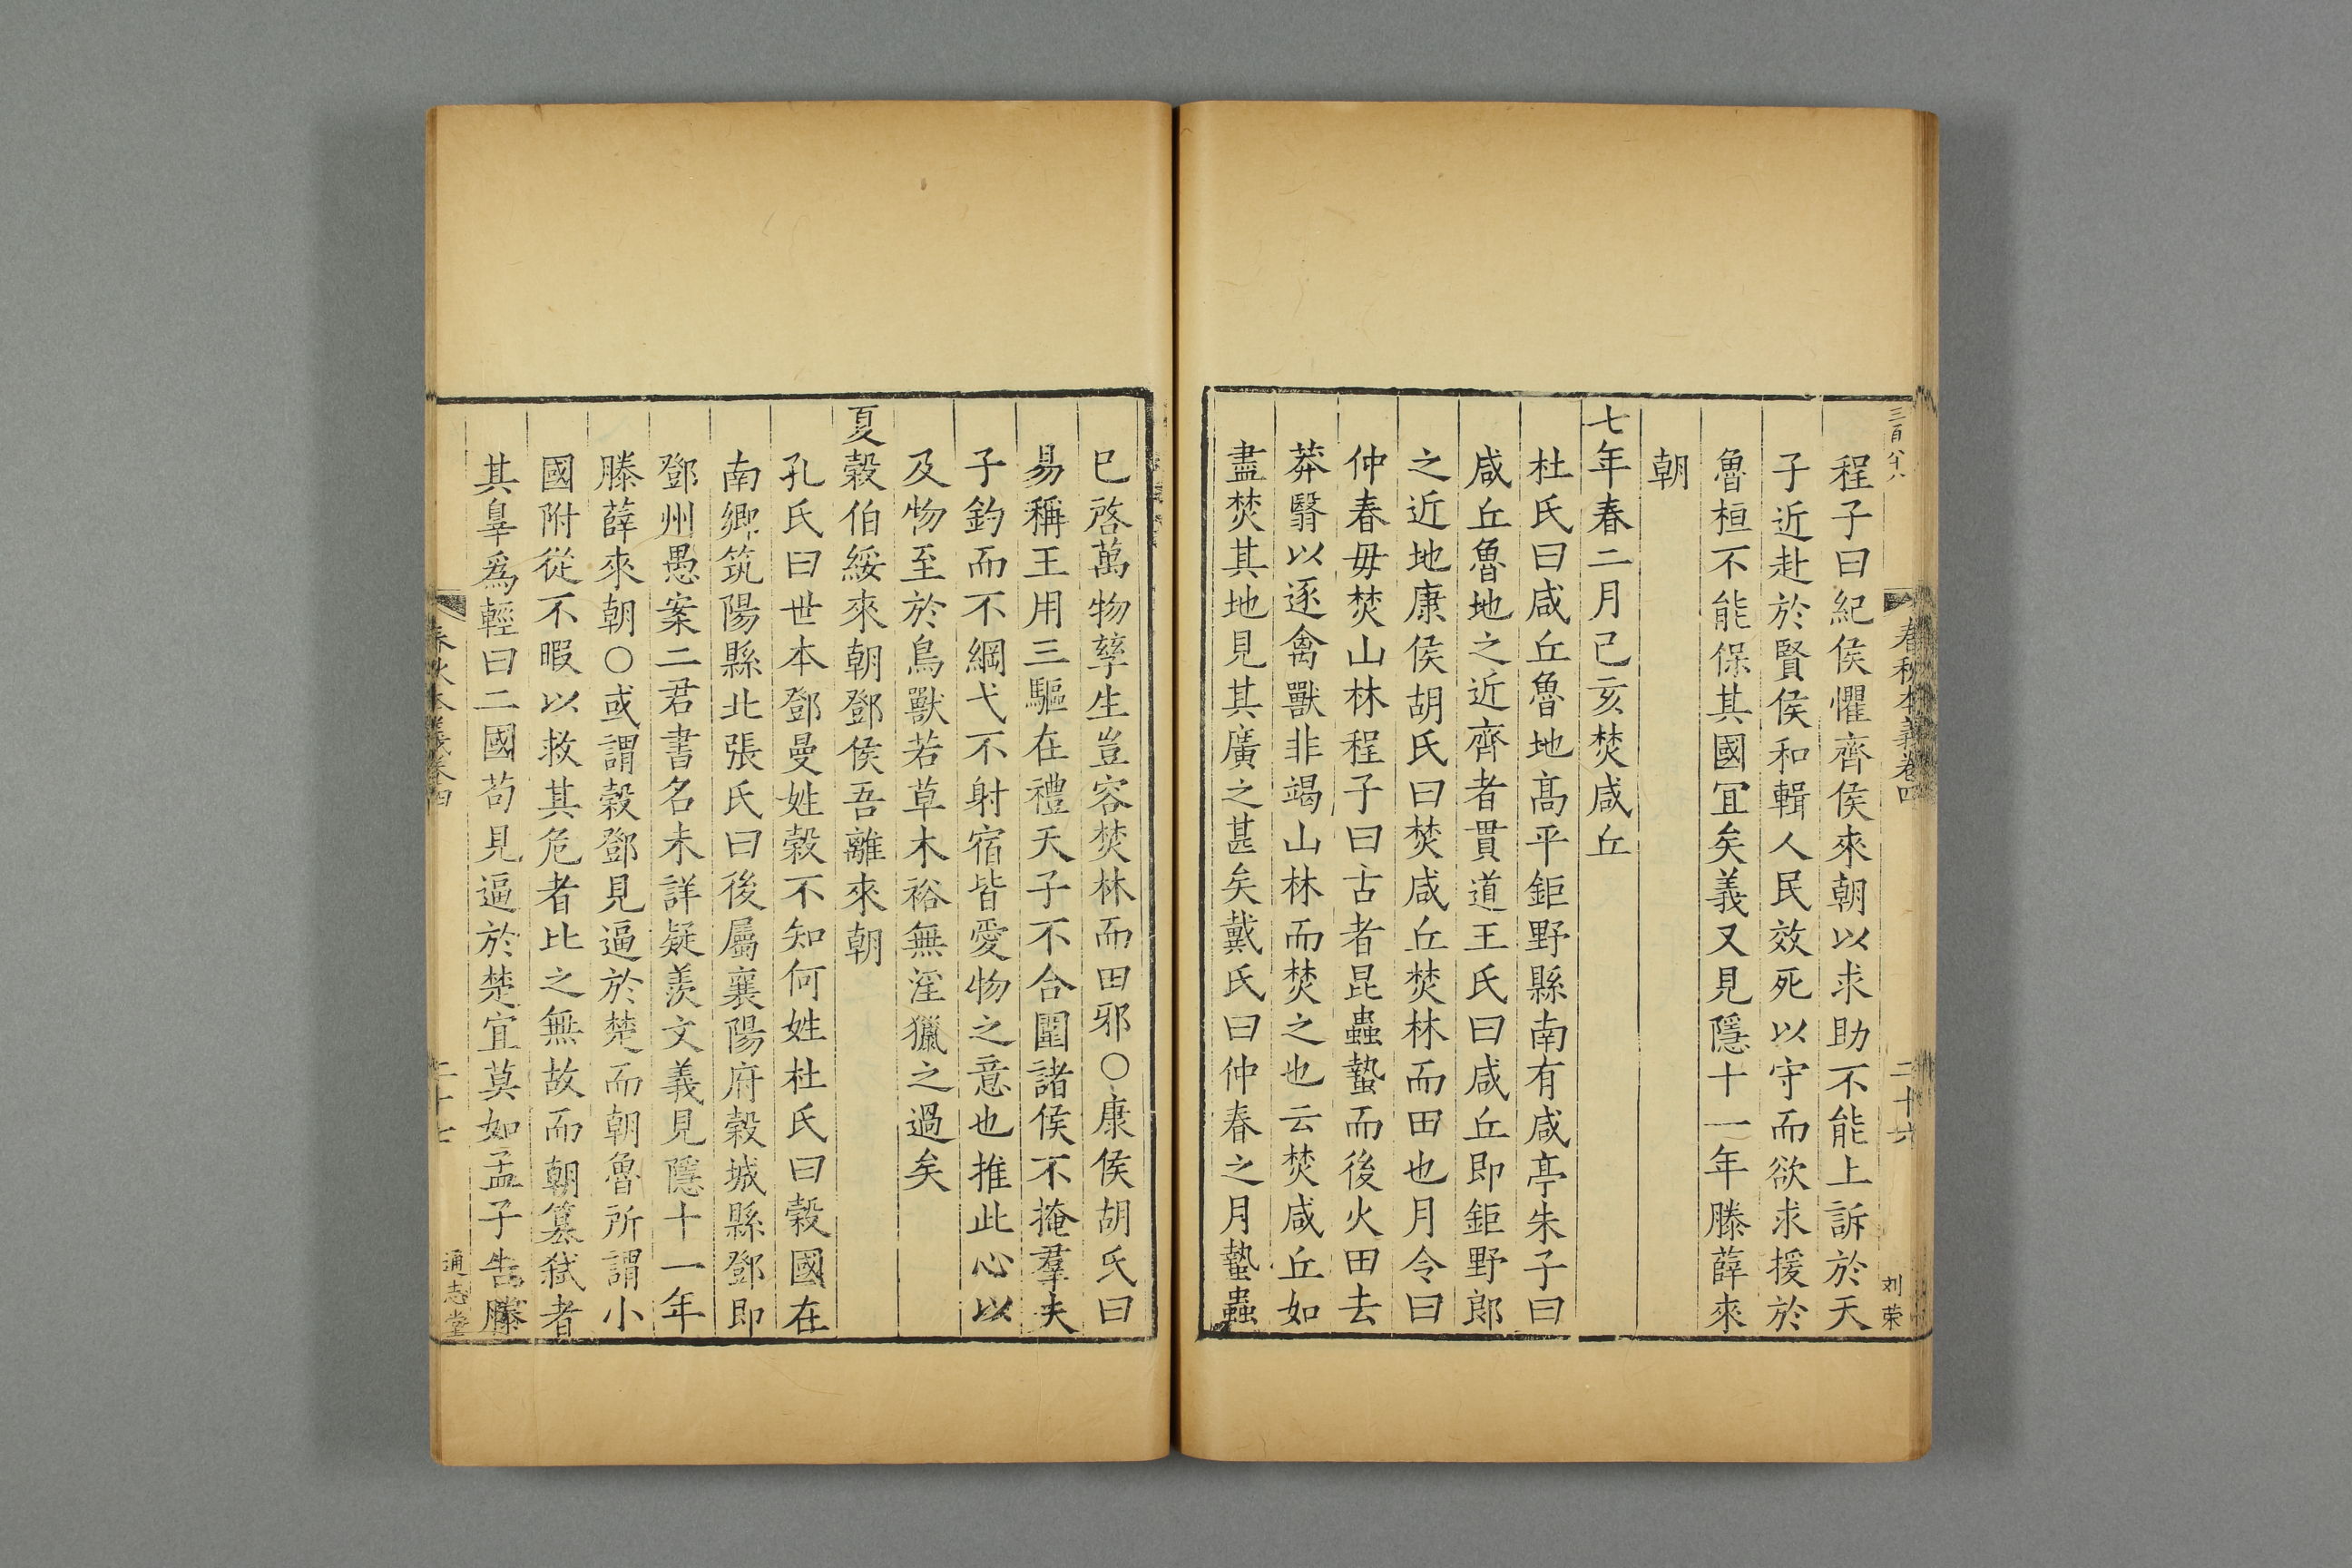 三百八十八
春秋本義卷四
二十六
刘荣
程子曰紀侯懼齊侯來朝以求助不能上訴於天
子近赴於賢侯和輯人民效死以守而欲求援於
魯桓不能保其國冝矣義又見隱十一年滕薛來
朝
七年春二月己亥焚咸丘
杜氏曰咸丘魯地高平鉅野縣南有咸亭朱子曰
咸丘魯地之近齊者貫道王氏曰咸丘即鉅野郎
之近地康侯胡氏曰焚咸丘焚林而田也月令曰
仲春毋焚山林程子曰古者昆蟲蟄而後火田去
莽翳以逐禽獸非竭山林而焚之也云焚咸丘如
盡焚其地見其廣之甚矣戴氏曰仲春之月蟄蟲
巳啓萬物孳生豈容焚林而田邪○康侯胡氏曰
易稱王用三驅在禮天子不合圍諸侯不掩羣夫
子釣而不綱弋不射宿皆愛物之意也推此心以
及物至於鳥獸若草木裕無淫獵之過矣
夏穀伯綏來朝鄧侯吾離來朝
孔氏曰世本鄧曼姓穀不知何姓杜氏曰穀國在
南鄉筑陽縣北張氏曰後屬襄陽府穀城縣鄧即
鄧州愚案二君書名未詳疑羨文義見隱十一年
滕薛來朝○或謂穀鄧見逼於楚而朝魯所謂小
國附從不暇以救其危者比之無故而朝篡弑者
其辠爲輕曰二國苟見逼於楚宜莫如孟子告滕
春秋本義卷四
二十七
通志堂